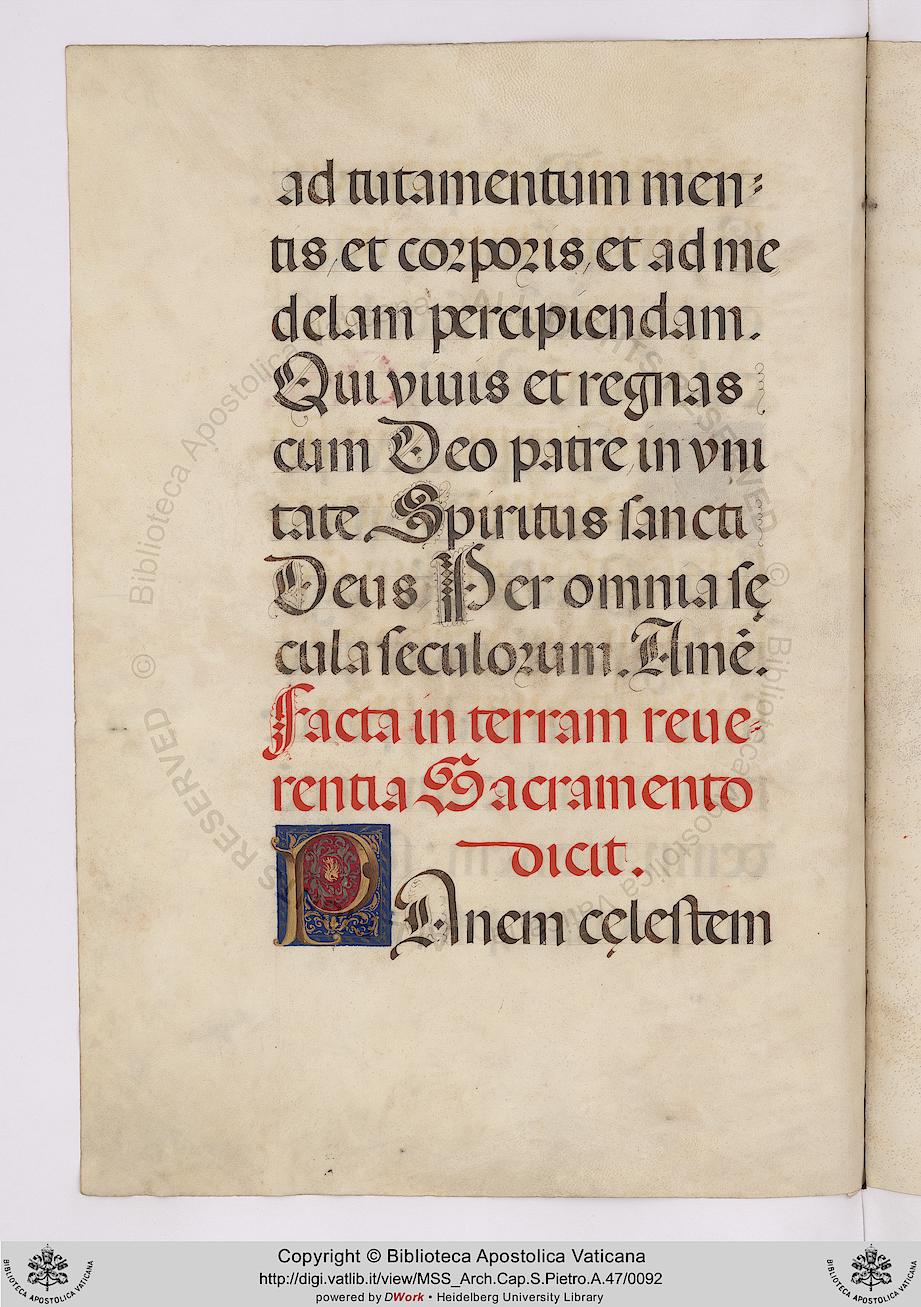 ad tutamentum men-
tis, et corporis, et ad me
delam percipiendam.
Qui viuis et regnas
cum Deo patre, in vni
tate Spiritus sancti
Deus Per omnia sę
cula seculorum. Amē.
Facta in terram reue-
rentia Sacramento
dicit.
PAnem cęlestem
Copyright © Biblioteca Apostolica Vaticana
http://digi.vatlib.it/view/MSS_Arch.Cap.S.Pietro.A.47/0092
powered by DWork • Heidelberg University Library
BIBLIOTECA APOSTOLICA VATICANA
BIBLIOTECA APOSTOLICA VATICANA